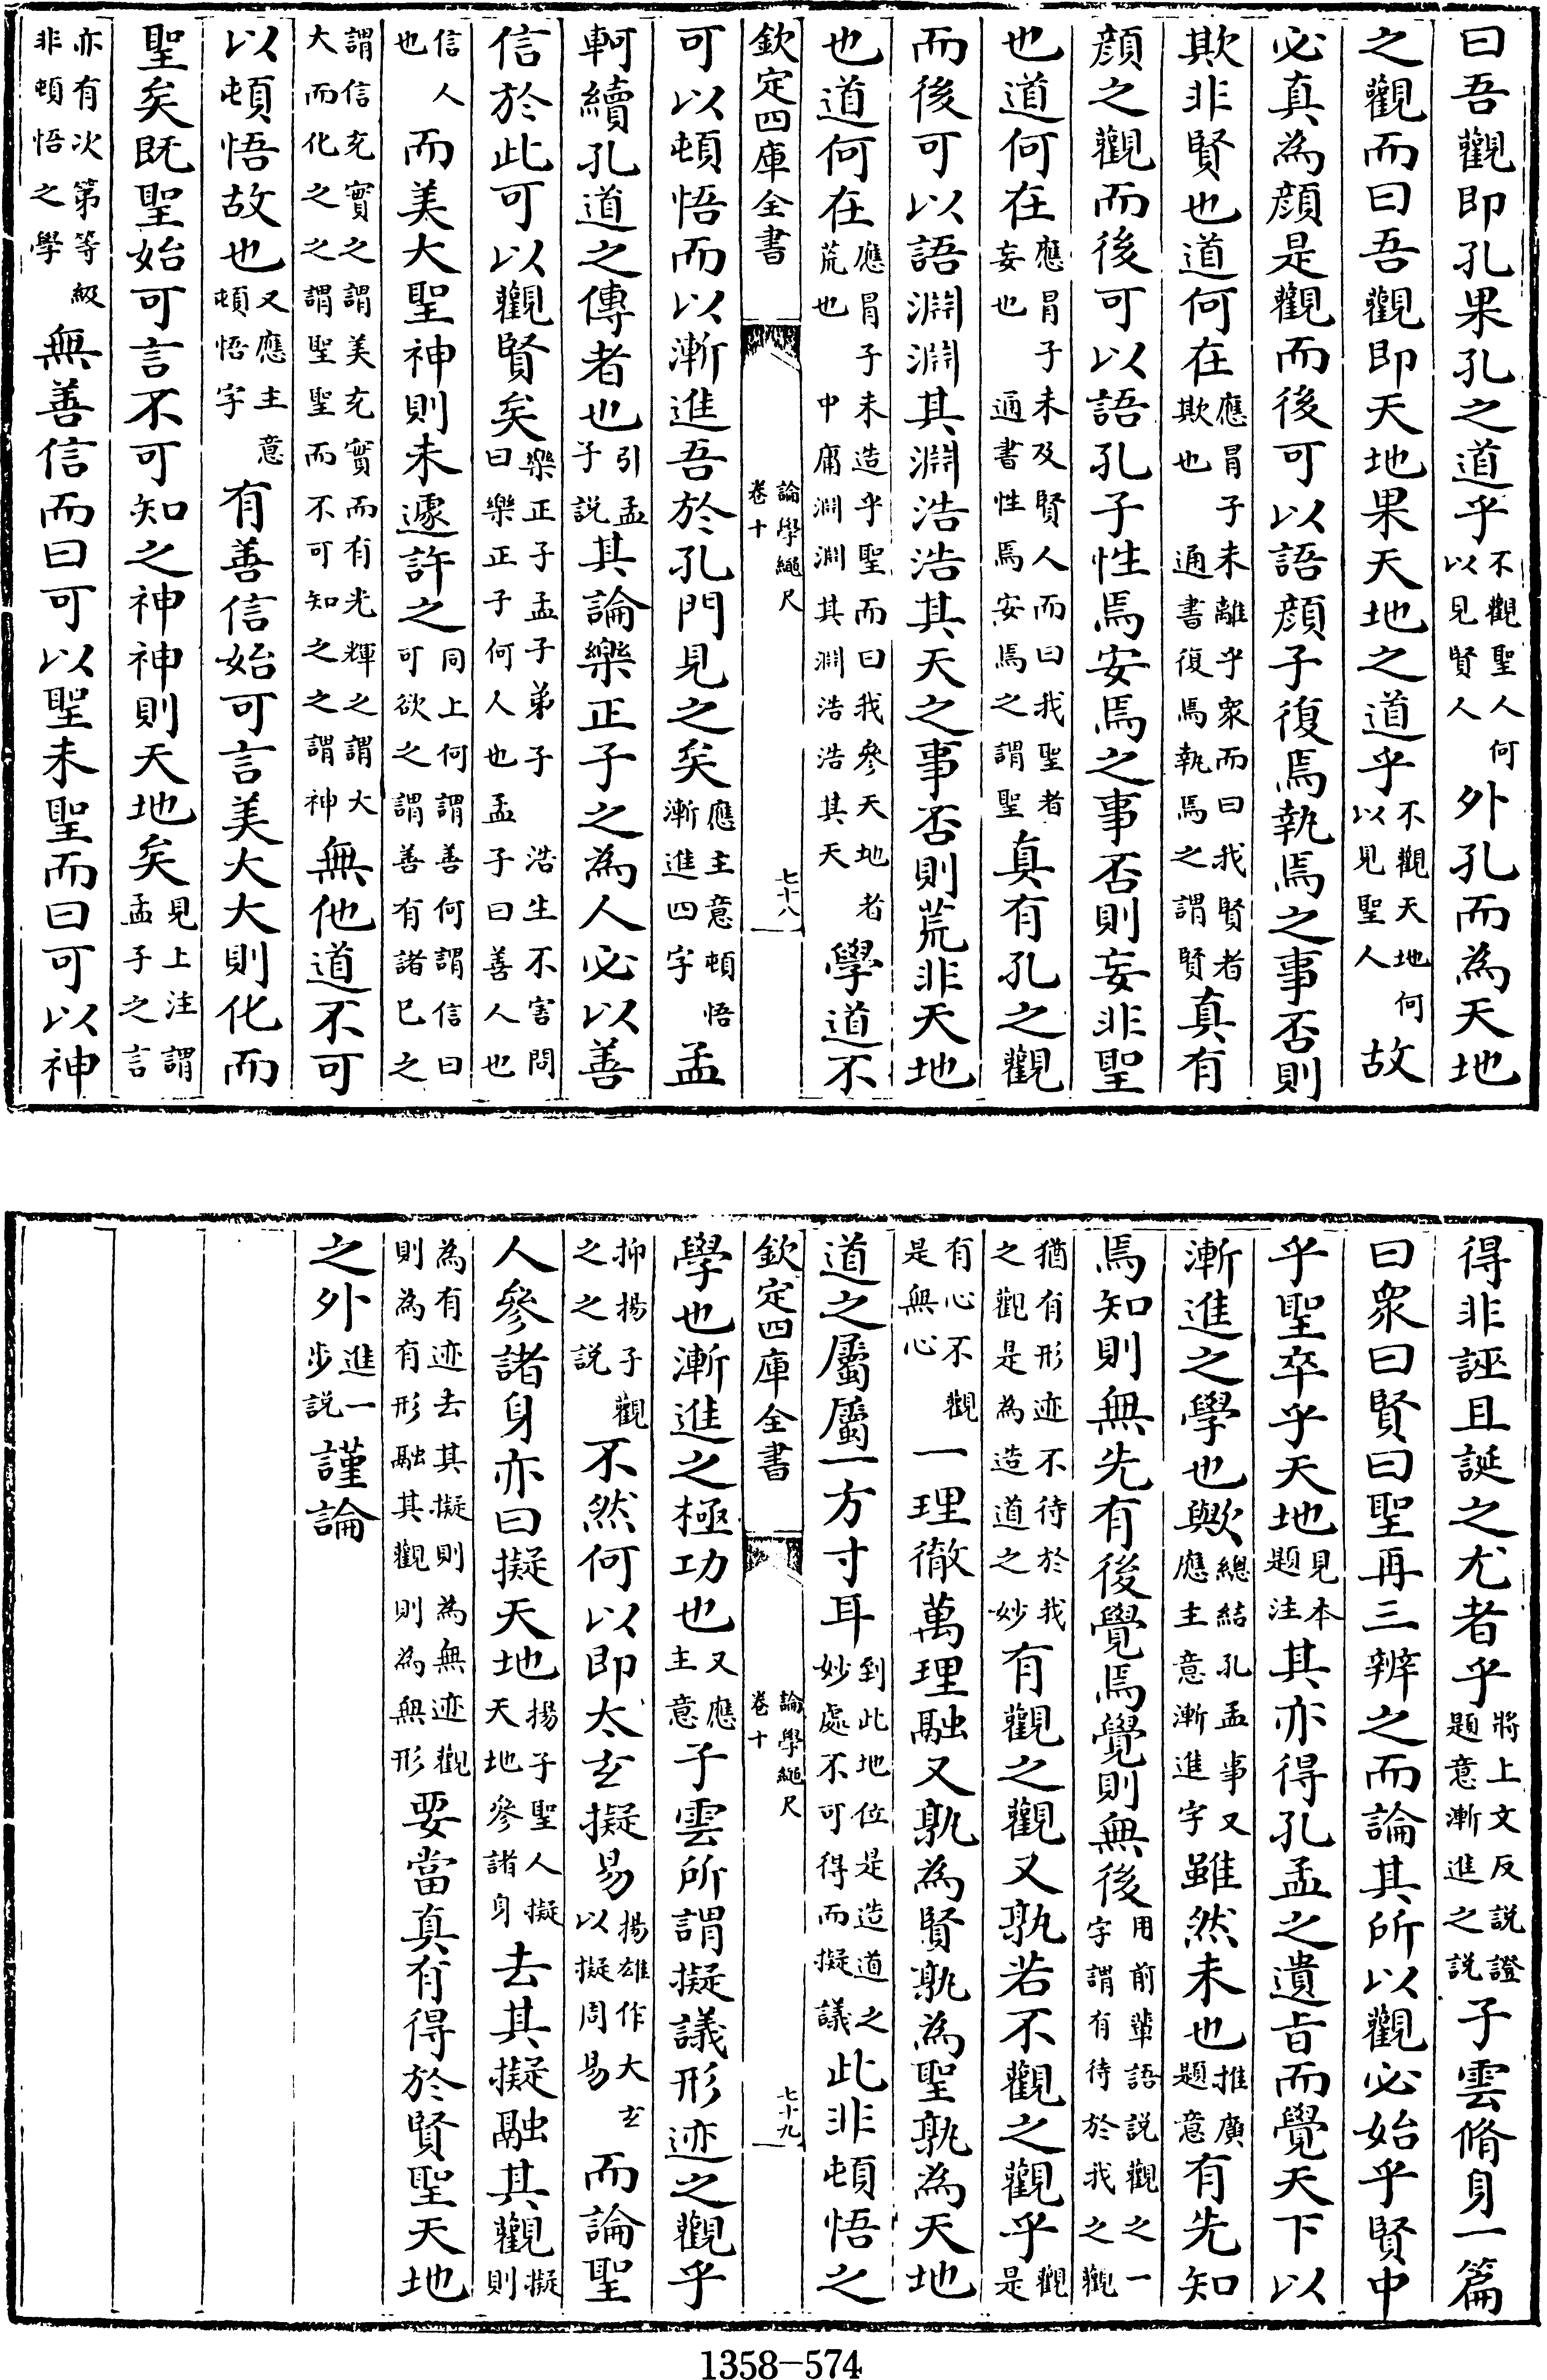 曰吾觀即孔果孔之道乎不觀聖人何以見賢人外孔而為天地
之觀而曰吾觀即天地果天地之道乎不觀天地何以見聖人故
必真為顔是觀而後可以語顔子復焉執焉之事否則
欺非賢也道何在應冒子未離乎衆而曰我賢者欺也通書復焉執焉之謂賢真有
顔之觀而後可以語孔子性焉安焉之事否則妄非聖
也道何在應冒子未及賢人而曰我聖者妄也通書性焉安焉之謂聖真有孔之觀
而後可以語淵淵其淵浩浩其天之事否則荒非天地
也道何在應冒子未造乎聖而曰我參天地者荒也中庸淵淵其淵浩浩其天學道不
欽定四庫全書 論學繩尺卷十 七十八
可以頓悟而以漸進吾於孔門見之矣應主意頓悟漸進四字孟
軻續孔道之傳者也引孟子説其論樂正子之為人必以善
信於此可以觀賢矣樂正子孟子弟子浩生不害問曰樂正子何人也孟子曰善人也
信人也而美大聖神則未遽許之同上何謂善何謂信曰可欲之謂善有諸已之
謂信充實之謂美充實而有光輝之謂大大而化之之謂聖聖而不可知之之謂神無他道不可
以頓悟故也又應主意頓悟字有善信始可言美大大則化而
聖矣既聖始可言不可知之神神則天地矣見上注謂孟子之言
亦有次第等級非頓悟之學無善信而曰可以聖未聖而曰可以神
得非誣且誕之尤者乎將上文反説證題意漸進之説子雲脩身一篇
曰衆曰賢曰聖再三辨之而論其所以觀必始乎賢中
乎聖卒乎天地見本題注其亦得孔孟之遺旨而覺天下以
漸進之學也歟總結孔孟事又應主意漸進字雖然未也推廣題意有先知
焉知則無先有後覺焉覺則無後用前輩語説觀之一字謂有待於我之觀
猶有形迹不待於我之觀是為造道之妙有觀之觀又孰若不觀之觀乎觀是
有心不觀是無心一理徹萬理融又孰為賢孰為聖孰為天地
道之屬屬一方寸耳到此地位是造道之妙處不可得而擬議此非頓悟之
欽定四庫全書 論學繩尺卷十 七十九
學也漸進之極功也又應主意子雲所謂擬議形迹之觀乎
抑揚子觀之之説不然何以即太玄擬易揚雄作大玄以擬周易而論聖
人參諸身亦曰擬天地揚子聖人擬天地參諸身去其擬融其觀擬則
為有迹去其擬則為無迹觀則為有形融其觀則為無形要當真有得於賢聖天地
之外進一步説謹論
1358-574